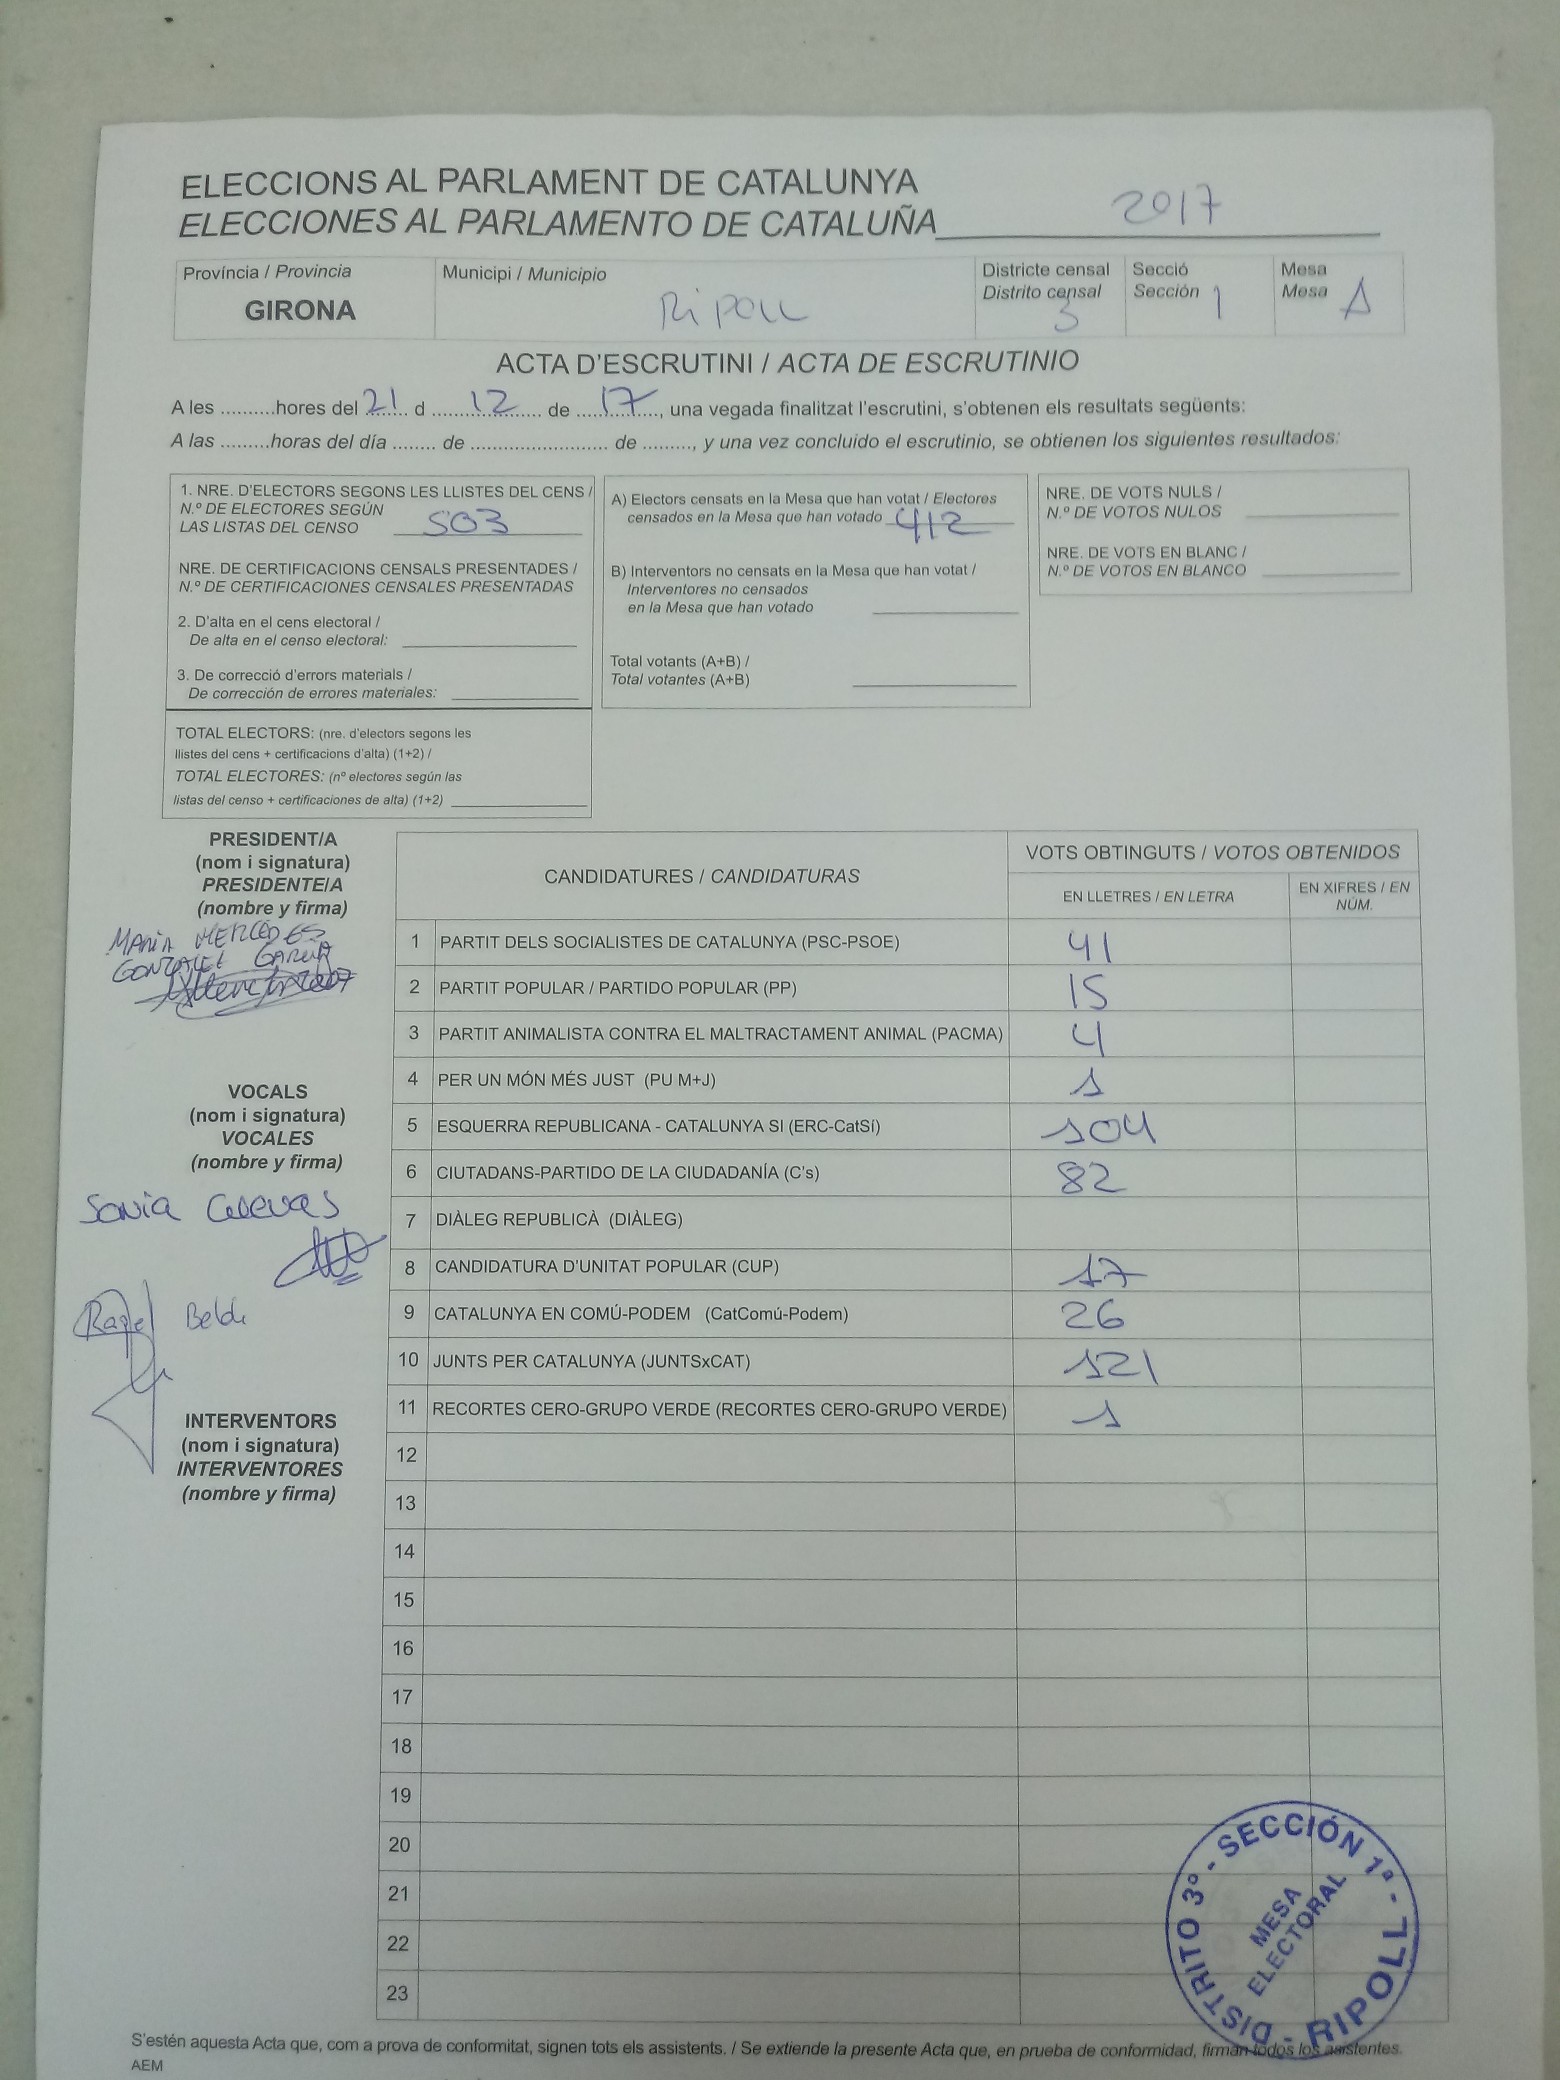 ELECCIONS AL PARLAMENT DE CATALUNYA
ELECCIONES AL PARLAMENTO DE CATALUÑA 2017
Província / Provincia
GIRONA
Municipi / Municipio
Ripoll
Districte censal
Distrito censal
3
Secció
Sección 1
Mesa
Mesa A
ACTA D'ESCRUTINI / ACTA DE ESCRUTINIO
A les .........hores del 21 d 12 de 17, una vegada finalitzat l'escrutini, s'obtenen els resultats següents:
A las .........horas del día ........ de ......................... de ........., y una vez concluido el escrutinio, se obtienen los siguientes resultados:
1. NRE. D'ELECTORS SEGONS LES LLISTES DEL CENS /
N.º DE ELECTORES SEGÚN
LAS LISTAS DEL CENSO 503
NRE. DE CERTIFICACIONS CENSALS PRESENTADES /
N.º DE CERTIFICACIONES CENSALES PRESENTADAS
2. D'alta en el cens electoral /
De alta en el censo electoral:
3. De correcció d'errors materials /
De corrección de errores materiales:
TOTAL ELECTORS: (nre. d'electors segons les
llistes del cens + certificacions d'alta) (1+2) /
TOTAL ELECTORES: (nº electores según las
listas del censo + certificaciones de alta) (1+2)
A) Electors censats en la Mesa que han votat / Electores
censados en la Mesa que han votado 412
B) Interventors no censats en la Mesa que han votat /
Interventores no censados
en la Mesa que han votado
Total votants (A+B) /
Total votantes (A+B)
NRE. DE VOTS NULS /
N.º DE VOTOS NULOS
NRE. DE VOTS EN BLANC /
N.º DE VOTOS EN BLANCO
PRESIDENT/A
(nom i signatura)
PRESIDENTE/A
(nombre y firma)
MARIA MERCEDES
GONZALEZ GARCIA
VOCALS
(nom i signatura)
VOCALES
(nombre y firma)
Sonia Cuevas
Raquel
INTERVENTORS
(nom i signatura)
INTERVENTORES
(nombre y firma)
CANDIDATURES / CANDIDATURAS
VOTS OBTINGUTS / VOTOS OBTENIDOS
EN LLETRES / EN LETRA
EN XIFRES / EN
NÚM.
1 PARTIT DELS SOCIALISTES DE CATALUNYA (PSC-PSOE) 41
2 PARTIT POPULAR / PARTIDO POPULAR (PP) 15
3 PARTIT ANIMALISTA CONTRA EL MALTRACTAMENT ANIMAL (PACMA) 4
4 PER UN MÓN MÉS JUST (PU M+J) 1
5 ESQUERRA REPUBLICANA - CATALUNYA SI (ERC-CatSí) 104
6 CIUTADANS-PARTIDO DE LA CIUDADANÍA (C's) 82
7 DIÀLEG REPUBLICÀ (DIÀLEG)
8 CANDIDATURA D'UNITAT POPULAR (CUP) 17
9 CATALUNYA EN COMÚ-PODEM (CatComú-Podem) 26
10 JUNTS PER CATALUNYA (JUNTSxCAT) 121
11 RECORTES CERO-GRUPO VERDE (RECORTES CERO-GRUPO VERDE) 1
12
13
14
15
16
17
18
19
20
21
22
23
DISTRITO 3º - SECCIÓN 1ª - RIPOLL -
MESA
ELECTORAL
S'estén aquesta Acta que, com a prova de conformitat, signen tots els assistents. / Se extiende la presente Acta que, en prueba de conformidad, firman todos los asistentes.
AEM